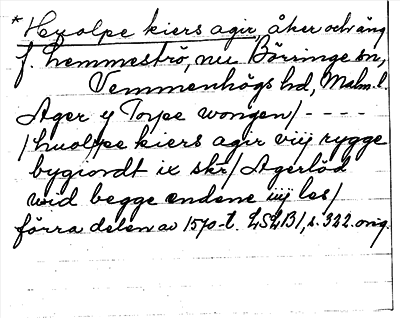 * Hvolpe kiers agir, åker och äng
f. Lemmeströ, nu Börringe sn,
Vemmenhögs hd, Malm. l.
Ager y Torpe wongen/ - - - -
/huolpe kiers agir viij rygge
bygiordt ix skr/ Agerlöd
wid begge endene iiij les/
förra delen av 1570-t. LSLB1, s. 322. orig.